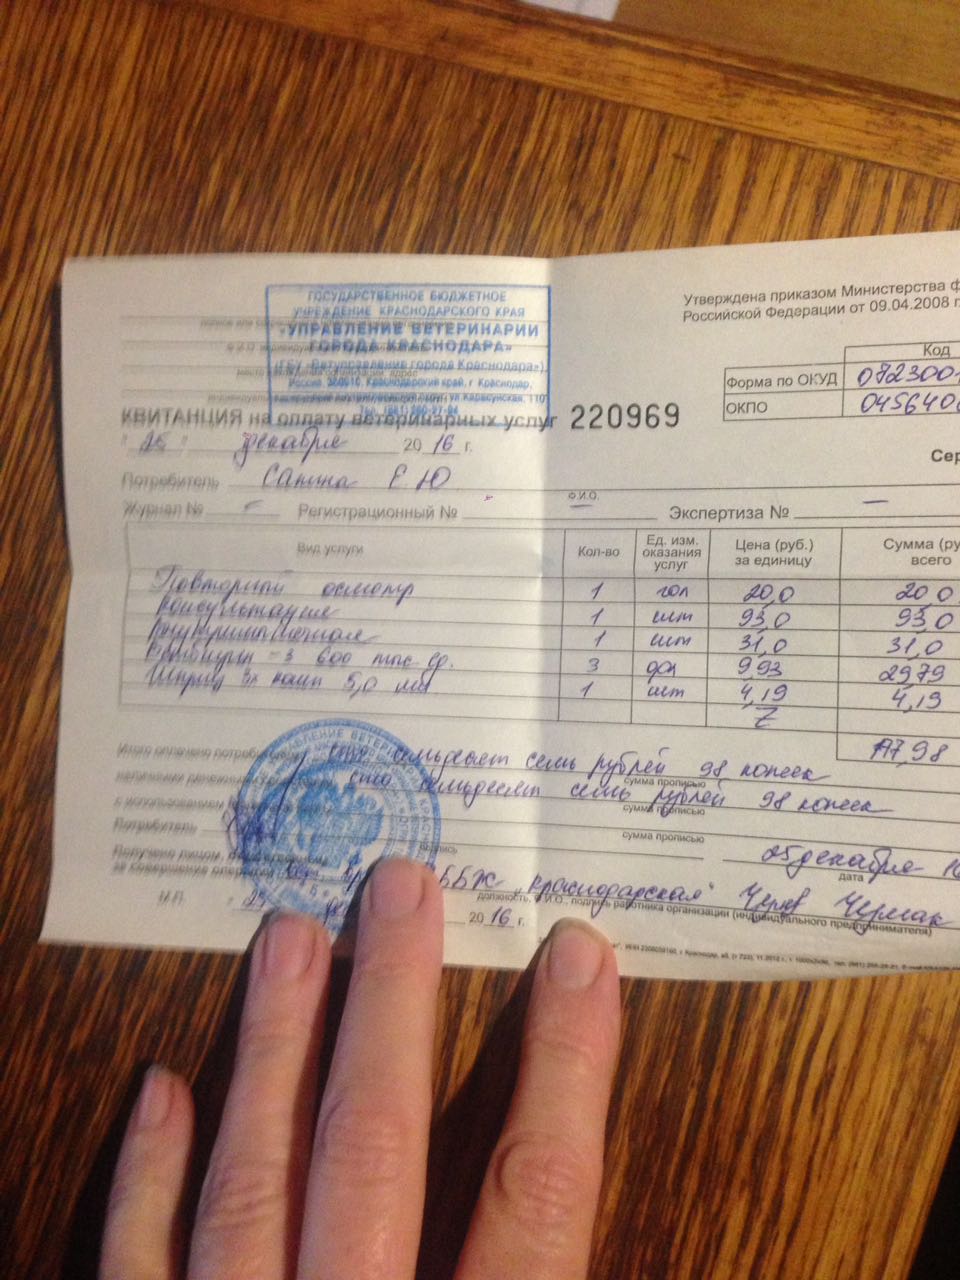 ГОСУДАРСТВЕННОЕ БЮДЖЕТНОЕ
УЧРЕЖДЕНИЕ КРАСНОДАРСКОГО КРАЯ
«УПРАВЛЕНИЕ ВЕТЕРИНАРИИ
ГОРОДА КРАСНОДАРА»
(ГБУ «Ветуправление города Краснодара»)
Россия, Краснодарский край, г. Краснодар,
ул. Карасунская, 110
Утверждена приказом Министерства ф
Российской Федерации от 09.04.2008 г.
Код
Форма по ОКУД 0723001
ОКПО 0456400
КВИТАНЦИЯ на оплату ветеринарных услуг 220969
Сер
" 25 " декабря 20 16 г.
Потребитель Санина Е.Ю
Ф.И.О.
Журнал № – Регистрационный № – Экспертиза № –
Вид услуги Кол-во Ед. изм. оказания услуг Цена (руб.) за единицу Сумма (ру всего
Повторный осмотр 1 гол 20,0 20,0
Консультация 1 шт 93,0 93,0
Внутримышечная 1 шт 31,0 31,0
3 600 тыс. ед. 3 9,93 29,79
Шприц 3х комп 5,0 мл 1 шт 4,19 4,19
Z
177,98
Итого оплачено потребителем сто семьдесят семь рублей 98 копеек
сумма прописью
наличными денежными сто семьдесят семь рублей 98 копеек
сумма прописью
с использованием
сумма прописью
Потребитель 25 декабря 16
подпись дата
Получено лицом, ответственным
за совершение операции ББЖ „Краснодарская"
должность, Ф.И.О., подпись работника организации (индивидуального предпринимателя)
М.П. " 25 " 20 16 г.